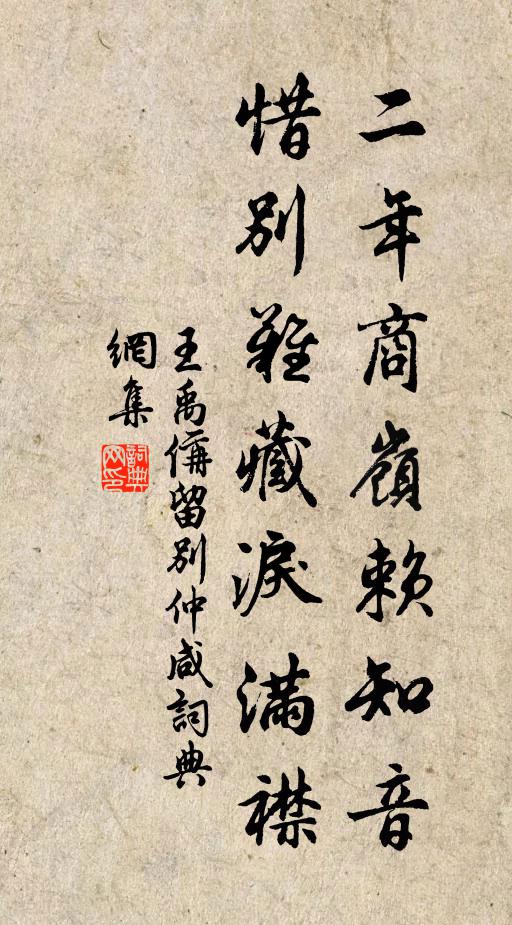 二年商嶺賴知音
惜別難藏淚滿襟
王禹偁留別仲咸詞典
網集
詞典
网印